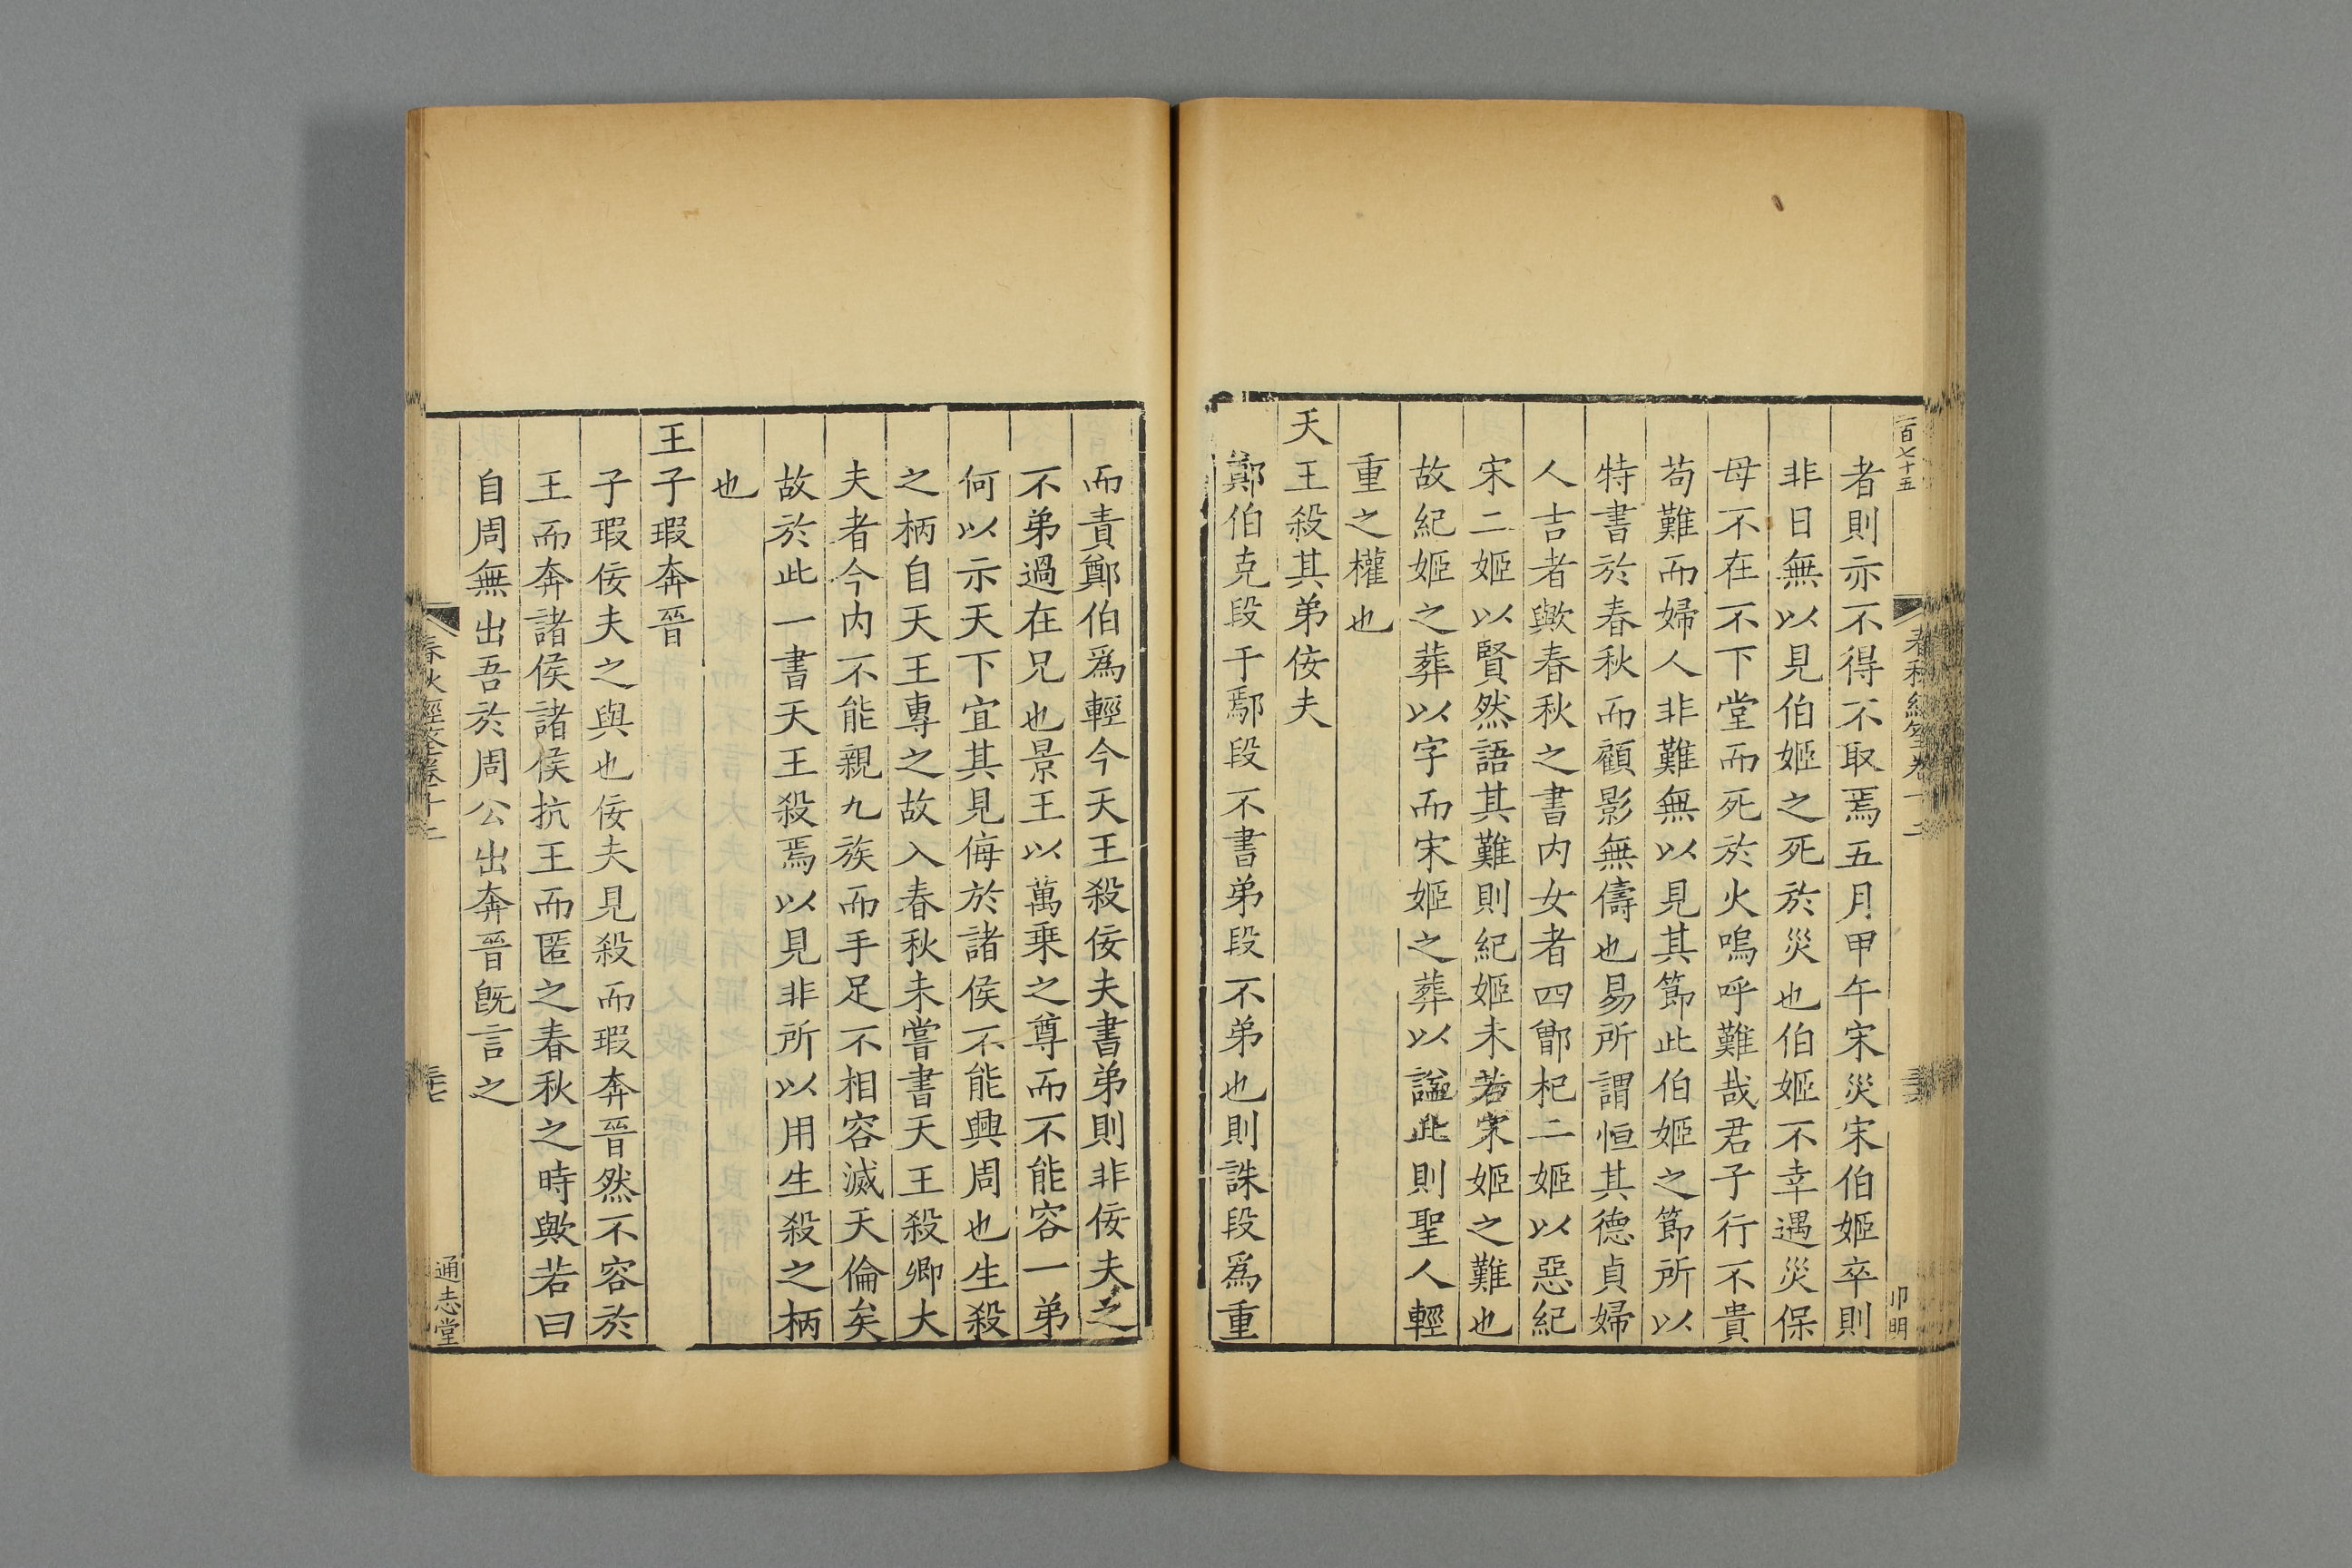 百七十五
者則亦不得不取焉五月甲午宋災宋伯姬卒則
非日無以見伯姬之死於災也伯姬不幸遇災保
母不在不下堂而死於火嗚呼難哉君子行不貴
苟難而婦人非難無以見其節此伯姬之節所以
特書於春秋而顧影無儔也易所謂恒其德貞婦
人吉者歟春秋之書内女者四鄫杞二姬以惡紀
宋二姬以賢然語其難則紀姬未若宋姬之難也
故紀姬之葬以字而宋姬之葬以諡此則聖人輕
重之權也
天王殺其弟佞夫
鄭伯克段于鄢段不書弟段不弟也則誅段爲重
而責鄭伯爲輕今天王殺佞夫書弟則非佞夫之
不弟過在兄也景王以萬乗之尊而不能容一弟
何以示天下宜其見侮於諸侯不能興周也生殺
之柄自天王專之故入春秋未嘗書天王殺卿大
夫者今内不能親九族而手足不相容滅天倫矣
故於此一書天王殺焉以見非所以用生殺之柄
也
王子瑕奔晉
子瑕佞夫之與也佞夫見殺而瑕奔晉然不容於
王而奔諸侯諸侯抗王而匿之春秋之時歟若曰
自周無出吾於周公出奔晉旣言之
春秋經筌卷十二
通志堂